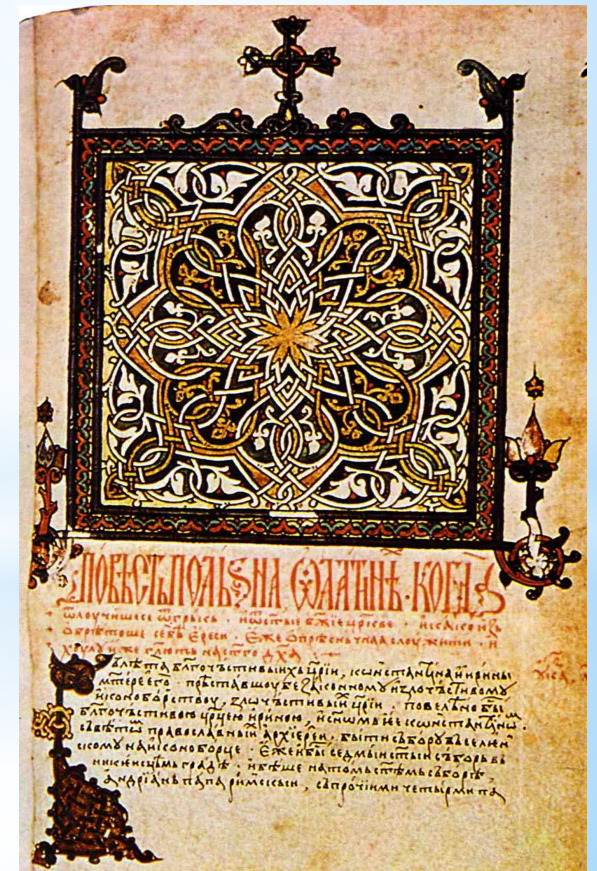 ПОВѢСТЬ ПОЛЬꙀНА Ѡ ЛАТИНѢ · КОГДА
ѿлоучишесе ѿ грькь · и ѿ стые бж҃їе црк҃ве · и како
ѡбрѣтоше себѣ ереси · еже опрѣсньчнаа слоужити · и
хоулоу иже гл҃ють на ст҃го дх҃а
Вь лѣта бл҃гочьстивыихь цр҃їи, кѡнстанцїна и ирины
мт҃ере его · прѣставшоу безаконномоу и злочьстивомоу
иконоборьствоу, злочьстивыи цр҃їи, повелѣно бы
бл҃гочьстивою цр҃цею ириною, и сн҃омь ее кѡнстанцїномь
православныи архїереи, быти сьбороу вьселен
скомоу на иконоборце · еже и бы седмыи ст҃ыи сьборь вь
никеисцѣмь градѣ · и бѣше на томь ст҃ѣмь сьборѣ,
андрїань папа римьскыи, сь прочїими четырми па